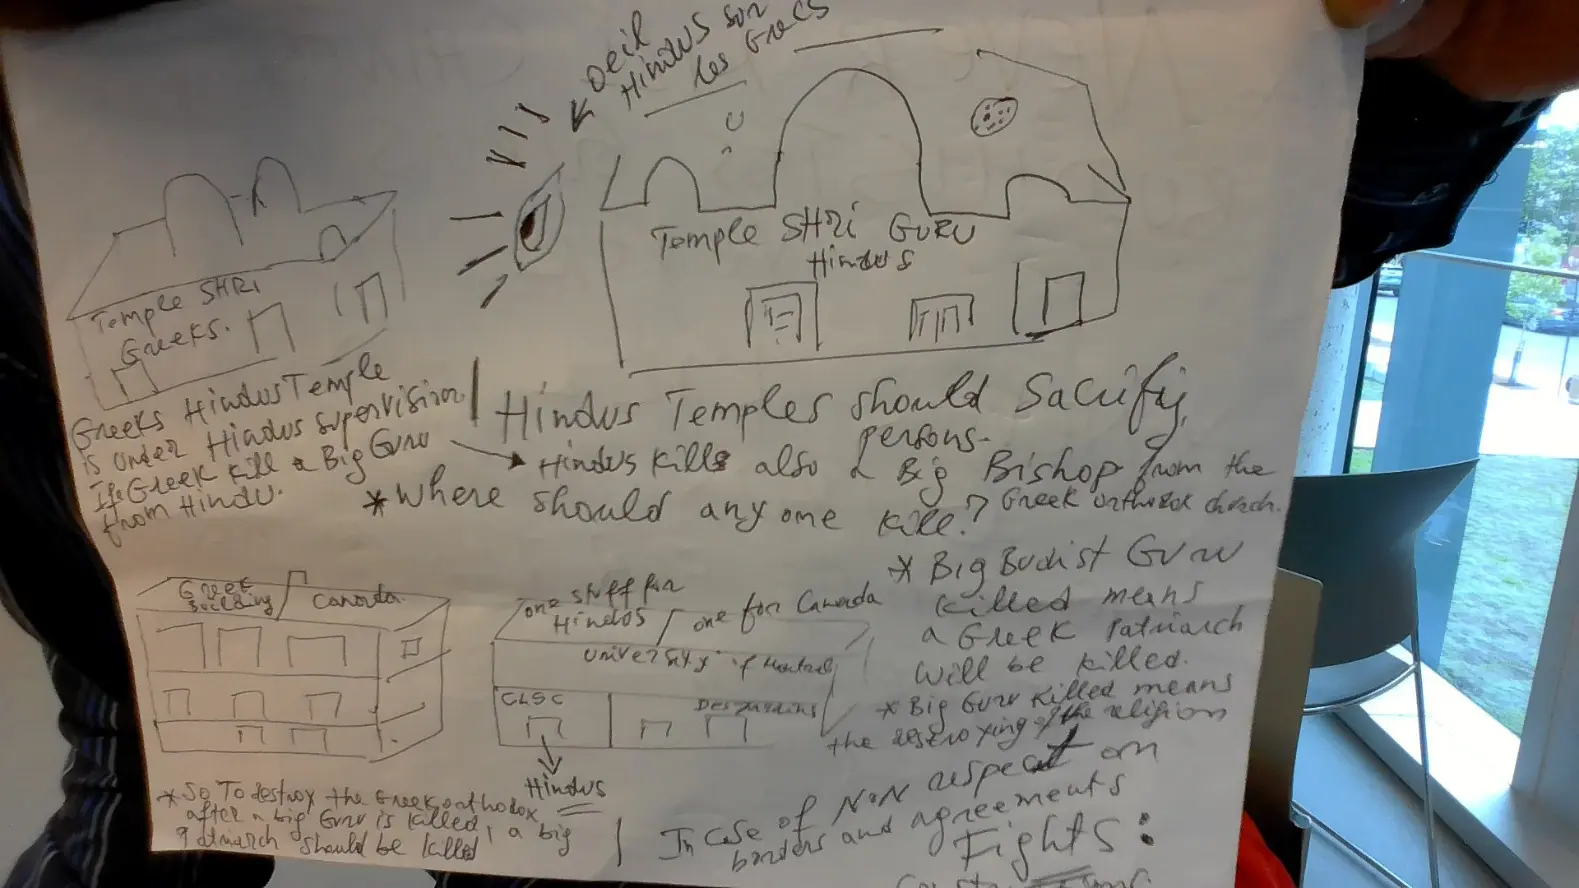 Oeil
Hindus sur
les Grecs
Temple SHRi GURU
Hindus
Temple SHRi
Greeks.
Greeks Hindus Temple
is under Hindus supervision
If Greek kill a Big Guru
from Hindu.
Hindus Temples should Sacrifiy
persons.
Hindus kills also a Big Bishop from the
Greek orthodox church.
* Where should any one kill?
* Big Budist Guru
killed means
a Greek Patriarch
will be killed.
* Big Guru killed means
the destroying of the religion
Greek
Building
Canada
one stuff for
Hindus
one for Canada
University of Montreal
CLSC
Desjardins
Hindus
* So To destroy the Greek orthodox
after a big Guru is killed, a big
Patriarch should be killed
In case of NoN respect on
borders and agreements
Fights: